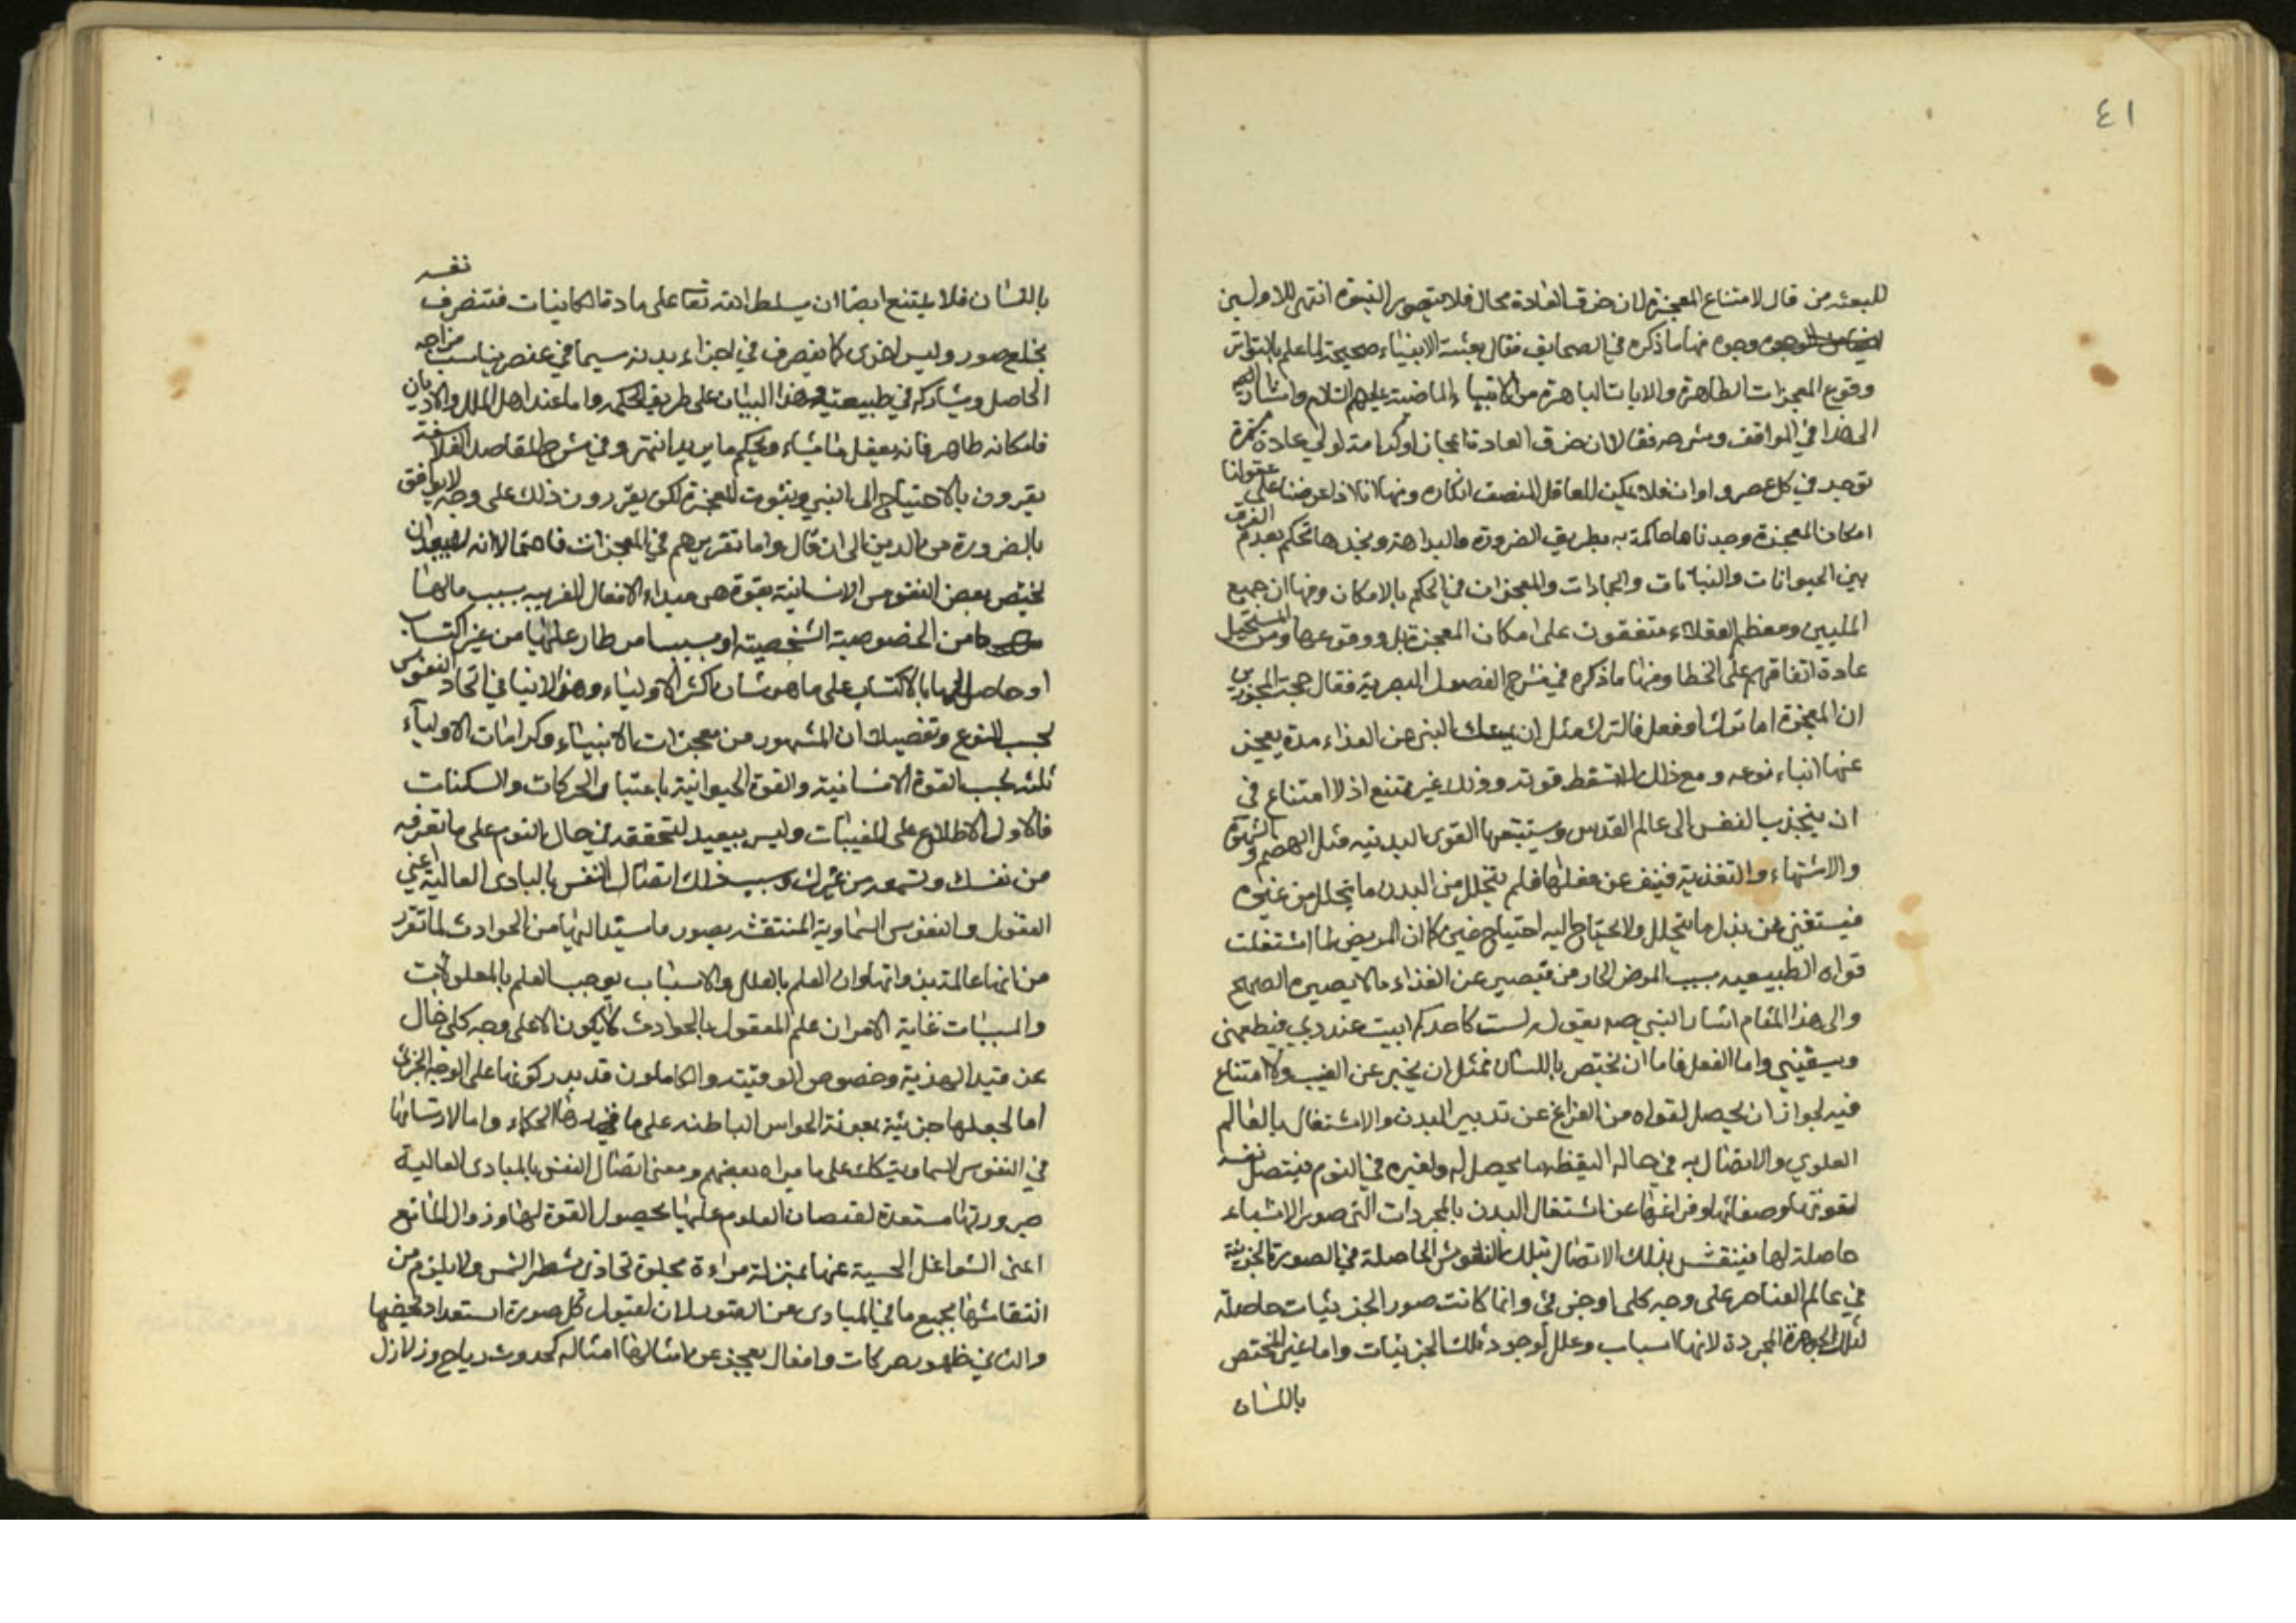 ٤١
للبعثه من قال لامتناع المعجزة لان خرق العادة محال فلا يتصور النبوة انتهى للاولين
وجوه منها ما ذكره في الصحايف فقال بعثة الانبياء صحيحة لما علم بالتواتر
وقوع المعجزات الظاهرة والايات الباهرة من الانبياء الماضية عليهم السلام واشار
الى هذا في المواقف وشرحه فقالا ان خرق العادة اعجازا وكرامة لولي عادة مستمرة
توجد في كل عصر واوان فلا يمكن للعاقل المنصف انكاره ومنها انا اذا عرضنا على عقولنا
امكان المعجزة وجدناها حاكمة به بطريق الضرورة والبداهة ونجدها تحكم بعدم الفرق
بين الحيوانات والنباتات والجمادات والمعجزات في الحكم بالامكان ومنها ان جميع
المليين ومعظم العقلاء متفقون على امكان المعجزة بل ووقوعها ومن المستحيل
عادة اتفاقهم على الخطا ومنها ما ذكره في شرح الفصول النصيرية فقال حجة المجوزين
ان المعجزة اما ترك او فعل فالترك مثل ان يمسك النبي عن الغذاء مدة يعجز
عنها ابناء نوعه ومع ذلك لا تسقط قوته وذلك غير ممتنع اذ لا امتناع في
ان ينجذب النفس الى عالم القدس وتستتبعها القوى البدنيه مثل الهضم والشهوة
والاشتهاء والتغذية فيقف عن فعلها فلم يتحلل من البدن ما يتحلل من غيره
فيستغني عن بدل ما يتحلل ولا يحتاج اليه احتياج غيره كما ان المريض لما اشتغلت
قواه الطبيعيه بسبب المرض الحار من يصبر عن الغذاء ما لا يصبره الصحيح
والى هذا المقام اشار النبي صه بقوله لست كاحدكم ابيت عند ربي فيطعمني
ويسقيني واما الفعل فاما ان يختص باللسان فمثل ان يخبر عن الغيب ولا امتناع
فيه لجواز ان يحصل لقواه من الفراغ عن تدبير البدن والاشتغال بالعالم
العلوي والاتصال به في حاله اليقظه ما يحصل له ولغيره في النوم فيتصل نفسه
لقوتها وصفائها وفراغها عن اشتغال البدن بالمجردات التي صور الاشياء
حاصلة لها فينتقش بذلك الاتصال بتلك النقوش الحاصلة في الصورة الجزئية
في عالم العناصر على وجه كلي او جزئي وانما كانت صور الجزئيات حاصلة
لتلك الجوهرة المجردة لانها اسباب وعلل لوجود تلك الجزئيات واما غير المختص
باللسان
باللسان فلا يمتنع ايضا ان يسلط الله تعا على مادة الكاينات فتتصرف نفسه
بخلع صور ولبس اخرى كما يتصرف في اجزاء بدنه سيما في عنصر يناسب مزاجه
الحاصل ويشاركه في طبيعته وهذا البيان على طريق الحكمه واما عند اهل الملل والاديان
فامكانه ظاهر فانه يفعل ما يشاء ويحكم ما يريد انتهى وفي شرح المقاصد الفلاسفة
يقرون بالاحتياج الى النبي وبثبوت المعجزة لكن يقررون ذلك على وجه لا يوافق
بالضرورة من الدين الى ان قال واما تقريرهم في المعجزات فاجمالا انه لا يبعد ان
يختص بعض النفوس الانسانية بقوة هي مبداء الافعال الغريبه بسبب مالها
من الخصوصية الشخصية او بسبب امر طار عليها من غير اكتساب
او حاصل لها بالاكتساب على ما هو شان اكثر الاولياء وهذا لا ينافي اتحاد النفوس
بحسب النوع وتفصيله ان المشهور من معجزات الانبياء وكرامات الاولياء
ثلثه بحسب القوة الانسانية والقوة الحيوانية باعتبار الحركات والسكنات
فالاول الاطلاع على المغيبات وليس ببعيد لتحققه في حال النوم على ما تعرفه
من نفسك وتسمعه من غيرك وسبب ذلك اتصال النفس بالمبادى العالية اعني
العقول والنفوس السماوية المنتقشه بصور ما يستند اليها من الحوادث لما تقرر
من انها عالمة بذواتها وان العلم بالعلل والاسباب يوجب العلم بالمعلولات
والمسببات غاية الامر ان علم العقول بالحوادث لا يكون الا على وجه كلي خال
عن قيد الهذية وخصوص الوقتيه والكاملون قد يدركونها على الوجه الجزئي
اما لجعلها جزئية بمعونة الحواس الباطنه على ما الحكماء واما لارتسامها
في النفوس السماوية كك على ما يراه بعضهم ومعنى اتصال النفس بالمبادى العالية
صيرورتها مستعدة لفيضان العلوم عليها بحصول القوة لها وزوال المانع
اعنى الشواغل الحسية عنها بمنزلة مراءة مجلوة تحاذى شطر الشمس ولا يلزم من
انتقاشها بجميع ما في المبادى من العقول لان لقبول كل صورة استعداد يخصها
والثاني ظهور حركات وافعال يعجز عن امثالها امثاله كحدوث رياح وزلازل